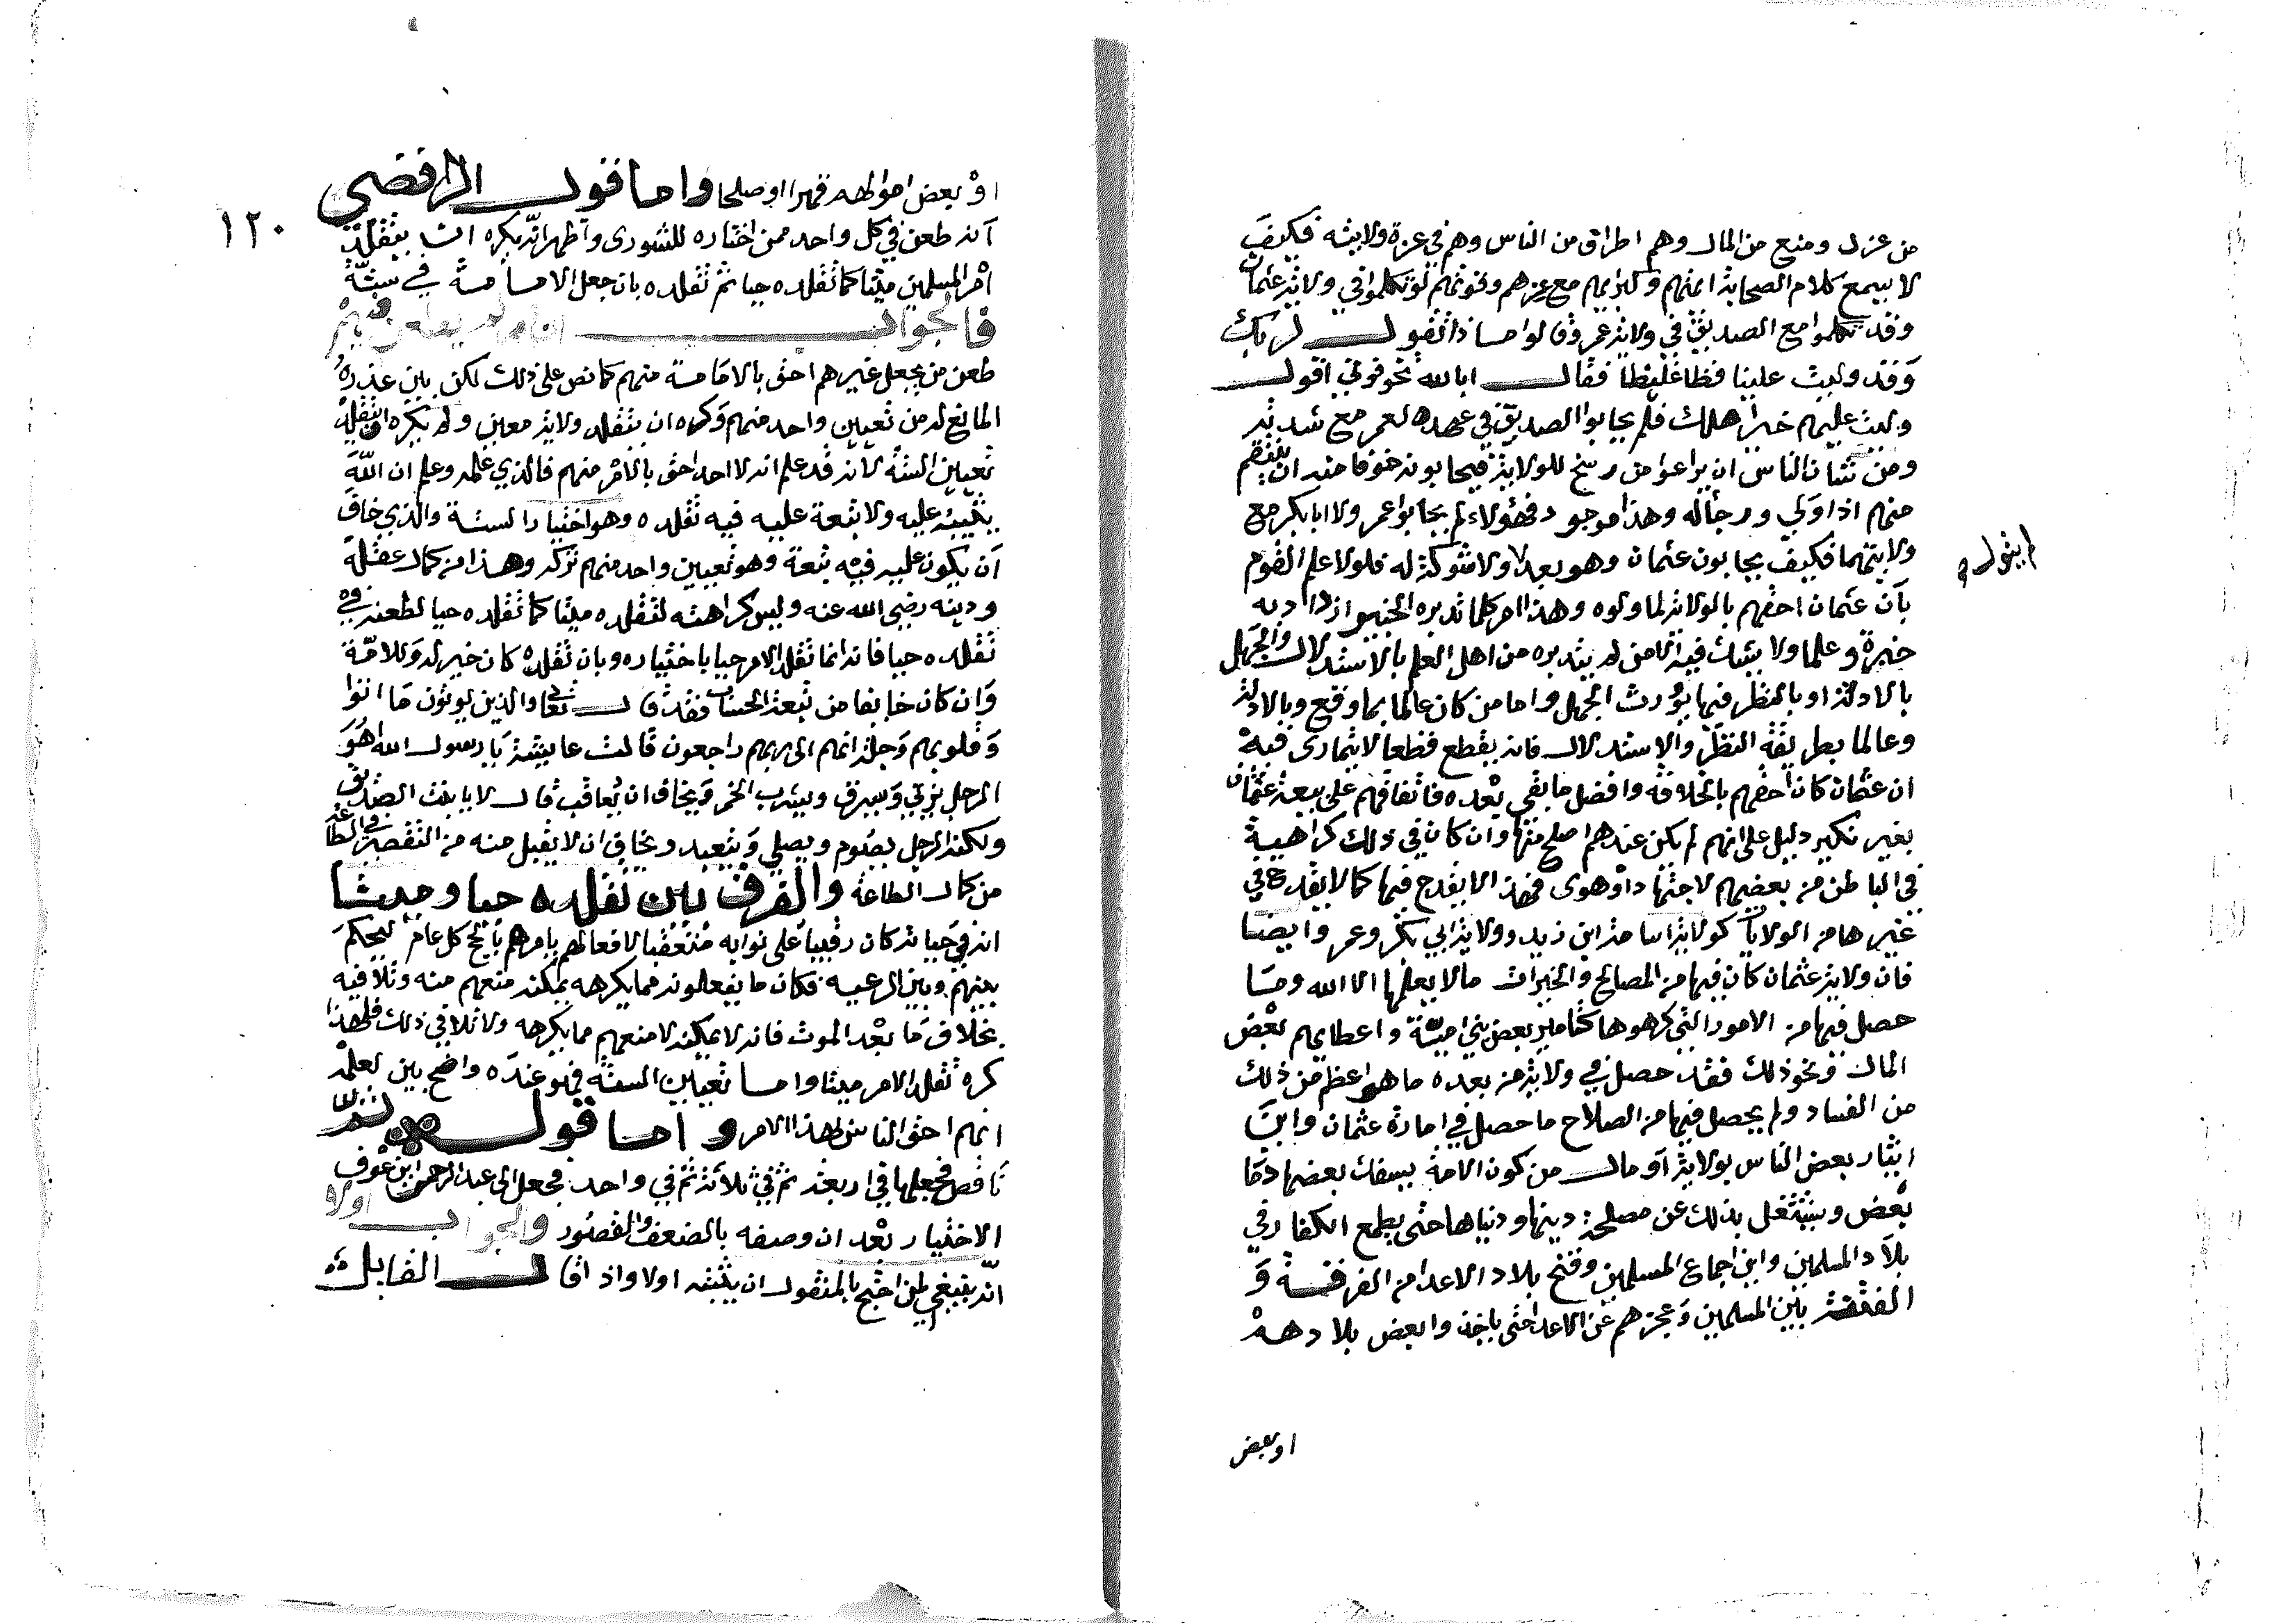 من عزل ومنع من المال وهم اطراف من الناس وهم في عزة ولايته فكيف
لا يسمع كلام الصحابة ائمتهم وكبرائهم مع عزهم وقوتهم لو تكلموا في ولاية عثمان
وقد تكلموا مع الصديق في ولاية عمر وقالوا ماذا تقول لربك
وقد وليت علينا فظا غليظا فقال ابالله تخوفوني اقول
وليت عليهم خير اهلك فلم يحابوا الصديق في عهده لعمر مع شدته
ومن شان الناس ان يراعوا من يرشح للولاية فيحابونه خوفا منه ان ينتقم
منهم اذا ولي ورجا له وهذا موجود فهؤلاء لم يحابوا عمر ولا ابا بكر مع
ولايتهما فكيف يحابون عثمان وهو بعد لا ولا شوكة له فلولا علم القوم
بان عثمان احقهم بالولاية لما ولوه وهذا امر كلما تدبره الخبير ازداد به
خبرة وعلما ولا يشك فيه الا من لم يتدبره من اهل العلم بالاستدلال والجهل
بالادلة او بالنظر فيها يورث الجهل واما من كان عالما بما وقع وبالادلة
وعالما بطريقة النظر والاستدلال فانه يقطع قطعا لا يتمارى فيه
ان عثمان كان احقهم بالخلافة وافضل ما بقي بعده فاتفاقهم على بيعة عثمان
بغير نكير دليل على انهم لم يكن عندهم اصلح منه وان كان في ذلك كراهية
في الباطن من بعضهم لاجتهاد او هوى فهذا لا يقدح فيها كما لا يقدح في
غيرها من الولايات كولاية اسامة ابن زيد وولاية ابي بكر وعمر وايضا
فان ولاية عثمان كان فيها من المصالح والخيرات ما لا يعلمها الا الله وما
حصل فيها من الامور التي كرهوها كتامير بعض بني امية واعطائهم بعض
المال ونحو ذلك فقد حصل في ولاية من بعده ما هو اعظم من ذلك
من الفساد ولم يحصل فيها من الصلاح ما حصل في امارة عثمان واين
ايثار بعض الناس بولاية او مال من كون الامة يسفك بعضها دما
بعض ويشتغل بذلك عن مصلحة دينها ودنياها حتى يطمع الكفار في
بلاد المسلمين واين اجماع المسلمين وفتح بلاد الاعدا من الفرقة و
الفتنة بين المسلمين وعجزهم عن الاعدا حتى ياخذوا بعض بلادهم
او بعض
او بعض اموالهم قهرا او صلحا واما قول الرافضي
انه طعن في كل واحد ممن اختاره للشورى واظهر انه يكره ان يتقلد
امر المسلمين ميتا كما تقلده حيا ثم تقلده بان جعل الامامة في ستة
فالجواب انه لم يطعن فيهم
طعن من يجعل غيرهم احق بالامامة منهم كما نص على ذلك لكن بين عذره
المانع له من تعيين واحد منهم وكره ان يتقلد ولاية معين ولم يكره ان يتقلد
تعيين الستة لانه قد علم انه لا احد احق بالامر منهم فالذي علمه وعلم ان الله
يثيبه عليه ولا تبعة عليه فيه تقلده وهو اختيار الستة والذي خاف
ان يكون عليه فيه تبعة وهو تعيين واحد منهم تركه وهذا من كمال عقله
ودينه رضي الله عنه وليس كراهته لتقلده ميتا كما تقلده حيا لطعنه في
تقلده حيا فانه انما تقلد الامر حيا باختياره وبان تقلده كان خير له وللامة
وان كان خايفا من تبعة الحساب فقد قال تعالى والذين يوتون ما اتوا
وقلوبهم وجلة انهم الى ربهم راجعون قالت عايشة يا رسول الله اهو
الرجل يزني ويسرق ويشرب الخمر ويخاف ان يعاقب قال لا يا بنت الصديق
ولكنه الرجل يصوم ويصلي ويتعبد ويخاف ان لا يقبل منه من التقصير في الطاعة
من كمال الطاعة والفرق بين تقلده حيا وميتا
انه في حياته كان رقيبا على نوابه متعقبا لافعالهم يامرهم بالحج كل عام ليحكم
بينهم وبين الرعية فكان ما يفعلونه مما يكرهه يمكنه منعهم منه وتلافيه
بخلاف ما بعد الموت فانه لا يمكنه لا منعهم مما يكرهه ولا تلافي ذلك فلهذا
كره تقلد الامر ميتا واما تعيين الستة فهو عنده واضح بين لعلمه
انهم احق الناس لهذا الامر واما قوله
ناقص فجعلها في اربعة ثم في ثلاثة ثم في واحد فجعل الى عبد الرحمن ابن عوف
الاختيار بعد ان وصفه بالضعف والقصور والجواب اولا
انه ينبغي لمن احتج بالمنقول ان يثبته اولا واذا قال القايل
١٢٠